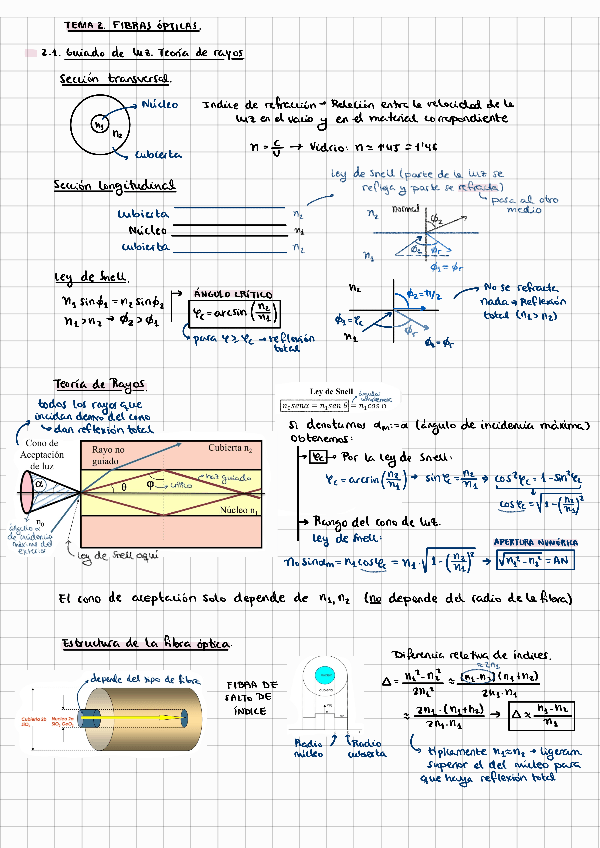 TEMA 2. FIBRAS ÓPTICAS.
2.1. Guiado de luz. Teoría de rayos
Sección transversal.
Núcleo
n₁
n₂
cubierta
Indice de refracción → Relación entre la velocidad de la
luz en el vacío y en el material correspondiente
n = c/v → Vidrio: n = 1'45 ÷ 1'46
Sección Longitudinal
cubierta n₂
Núcleo n₁
cubierta n₂
Ley de Snell (parte de la luz se
refleja y parte se refracta)
pasa al otro
medio
normal
n₂
ϕ₂
n₁
ϕr
ϕ₁ = ϕr
Ley de Snell.
n₁ sinϕ₁ = n₂ sinϕ₂
n₁ > n₂ → ϕ₂ > ϕ₁
ÁNGULO CRÍTICO
φc = arcsin (n₂/n₁)
para φ ≥ φc → reflexión
total
n₂
ϕ₂ = π/2
ϕ₁ = φc
n₁
ϕr
ϕ₁ = ϕr
No se refracta
nada → Reflexión
total (n₁ > n₂)
Teoría de Rayos.
todos los rayos que
incidan dentro del cono
dan reflexión total
Cono de
Aceptación
de luz
Rayo no
guiado
Cubierta n₂
α
θ
φ
crítico
haz guiado
Núcleo n₁
n₀
de incidencia
máxima del
Ley de Snell aquí
Ley de Snell
n₀ senα = n₁ sen θ = n₁ cos φ
Si denotamos αm = α (ángulo de incidencia máxima)
obtenemos:
φc → Por la ley de Snell:
φc = arcsin (n₂/n₁) → sin φc = n₂/n₁ → cos²φc = 1 - sin²φc
cos φc = √(1 - (n₂/n₁)²)
Rango del cono de luz.
Ley de Snell:
n₀ sinαm = n₁ cosφc = n₁ · √(1 - (n₂/n₁)²) → √(n₁² - n₂²) = AN
APERTURA NUMÉRICA
El cono de aceptación solo depende de n₁, n₂ (no depende del radio de la fibra)
Estructura de la fibra óptica.
depende del tipo de fibra
Cubierta 2b
SiO₂
Núcleo 2a
SiO₂ GeO₂
FIBRA DE
SALTO DE
ÍNDICE
Radio
núcleo
Radio
cubierta
Diferencia relativa de índices.
≈ 2n₁
Δ = (n₁² - n₂²)/2n₁² ≈ (n₁ - n₂)(n₁ + n₂)/2n₁·n₁
≈ 2n₁·(n₁ + n₂)/2n₁·n₁ → Δ ≈ (n₁ - n₂)/n₁
típicamente n₁ ≈ n₂ → ligeram
superior el del núcleo para
que haya reflexión total